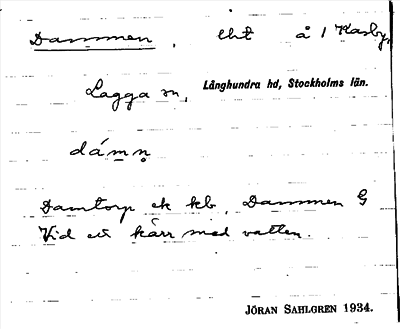 Dammen, lht å 1 Karby,
Lagga sn, Långhundra hd, Stockholms län.
dámn̥
Damtorp ek kb, Dammen G
Vid ett kärr med vatten.
JÖRAN SAHLGREN 1934.